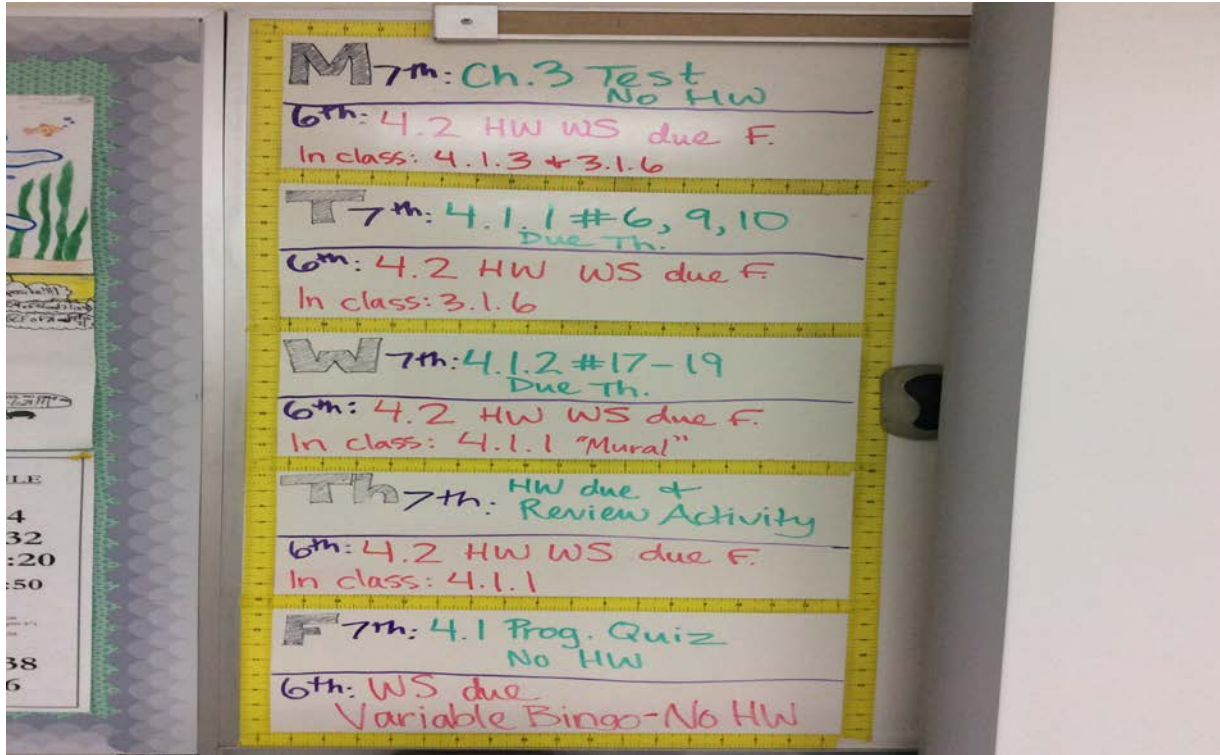 M 7th: Ch.3 Test
No HW
6th: 4.2 HW WS due F.
In class: 4.1.3 + 3.1.6
T 7th: 4.1.1 #6, 9, 10
Due Th.
6th: 4.2 HW WS due F.
In class: 3.1.6
W 7th: 4.1.2 #17-19
Due Th.
6th: 4.2 HW WS due F.
In class: 4.1.1 "Mural"
Th 7th: HW due +
Review Activity
6th: 4.2 HW WS due F.
In class: 4.1.1
F 7th: 4.1 Prog. Quiz
No HW
6th: WS due
Variable Bingo-No HW
ULE
4
32
:20
:50
38
6